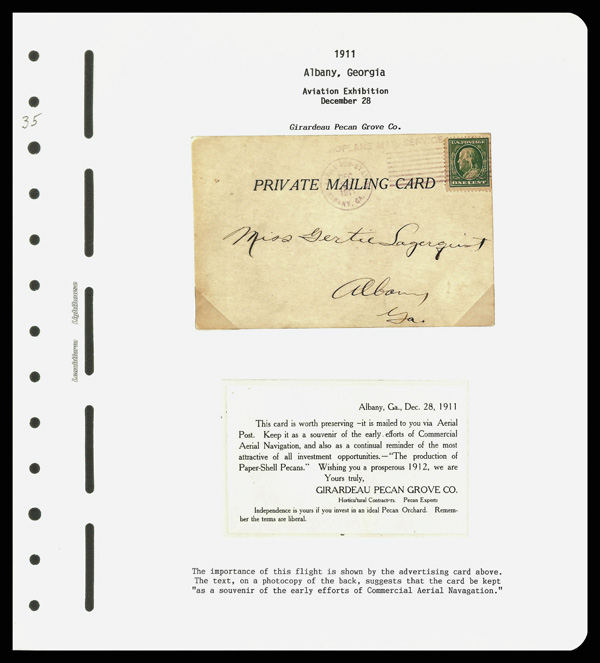 1911
Albany, Georgia
Aviation Exhibition
December 28
35
Girardeau Pecan Grove Co.
SERVICE
U.S. POSTAGE
ONE CENT
PRIVATE MAILING CARD
Miss Gertie Lagerquist
Albany,
Ga.
Lighthouse
Albany, Ga., Dec. 28, 1911
This card is worth preserving—it is mailed to you via Aerial
Post. Keep it as a souvenir of the early efforts of Commercial
Aerial Navigation, and also as a continual reminder of the most
attractive of all investment opportunities.—"The production of
Paper-Shell Pecans." Wishing you a prosperous 1912, we are
Yours truly,
GIRARDEAU PECAN GROVE CO.
Horticultural Contractors. Pecan Experts
Independence is yours if you invest in an ideal Pecan Orchard. Remem-
ber the terms are liberal.
The importance of this flight is shown by the advertising card above.
The text, on a photocopy of the back, suggests that the card be kept
"as a souvenir of the early efforts of Commercial Aerial Navagation."